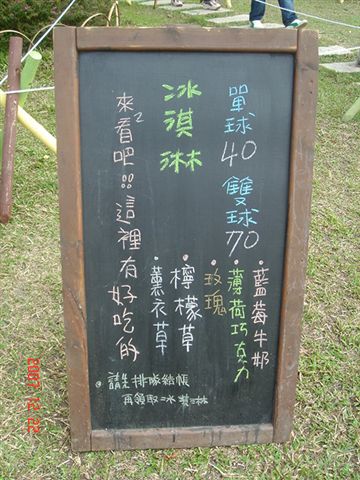 單球40 雙球70
冰淇淋
•藍莓牛奶
•薄荷巧克力
•玫瑰
•檸檬草
•薰衣草
來看吧!! 這裡有好吃的
請先排隊結帳
再領取冰淇淋
2007 12 22